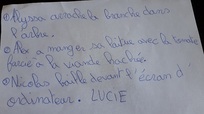 Alyssa accroche la branche dans
l'arbre.
Alex a manger sa pâte avec la tomate
farcie a la viande hachée.
Nicolas baille devant l'écran d'
ordinateur. LUCIE